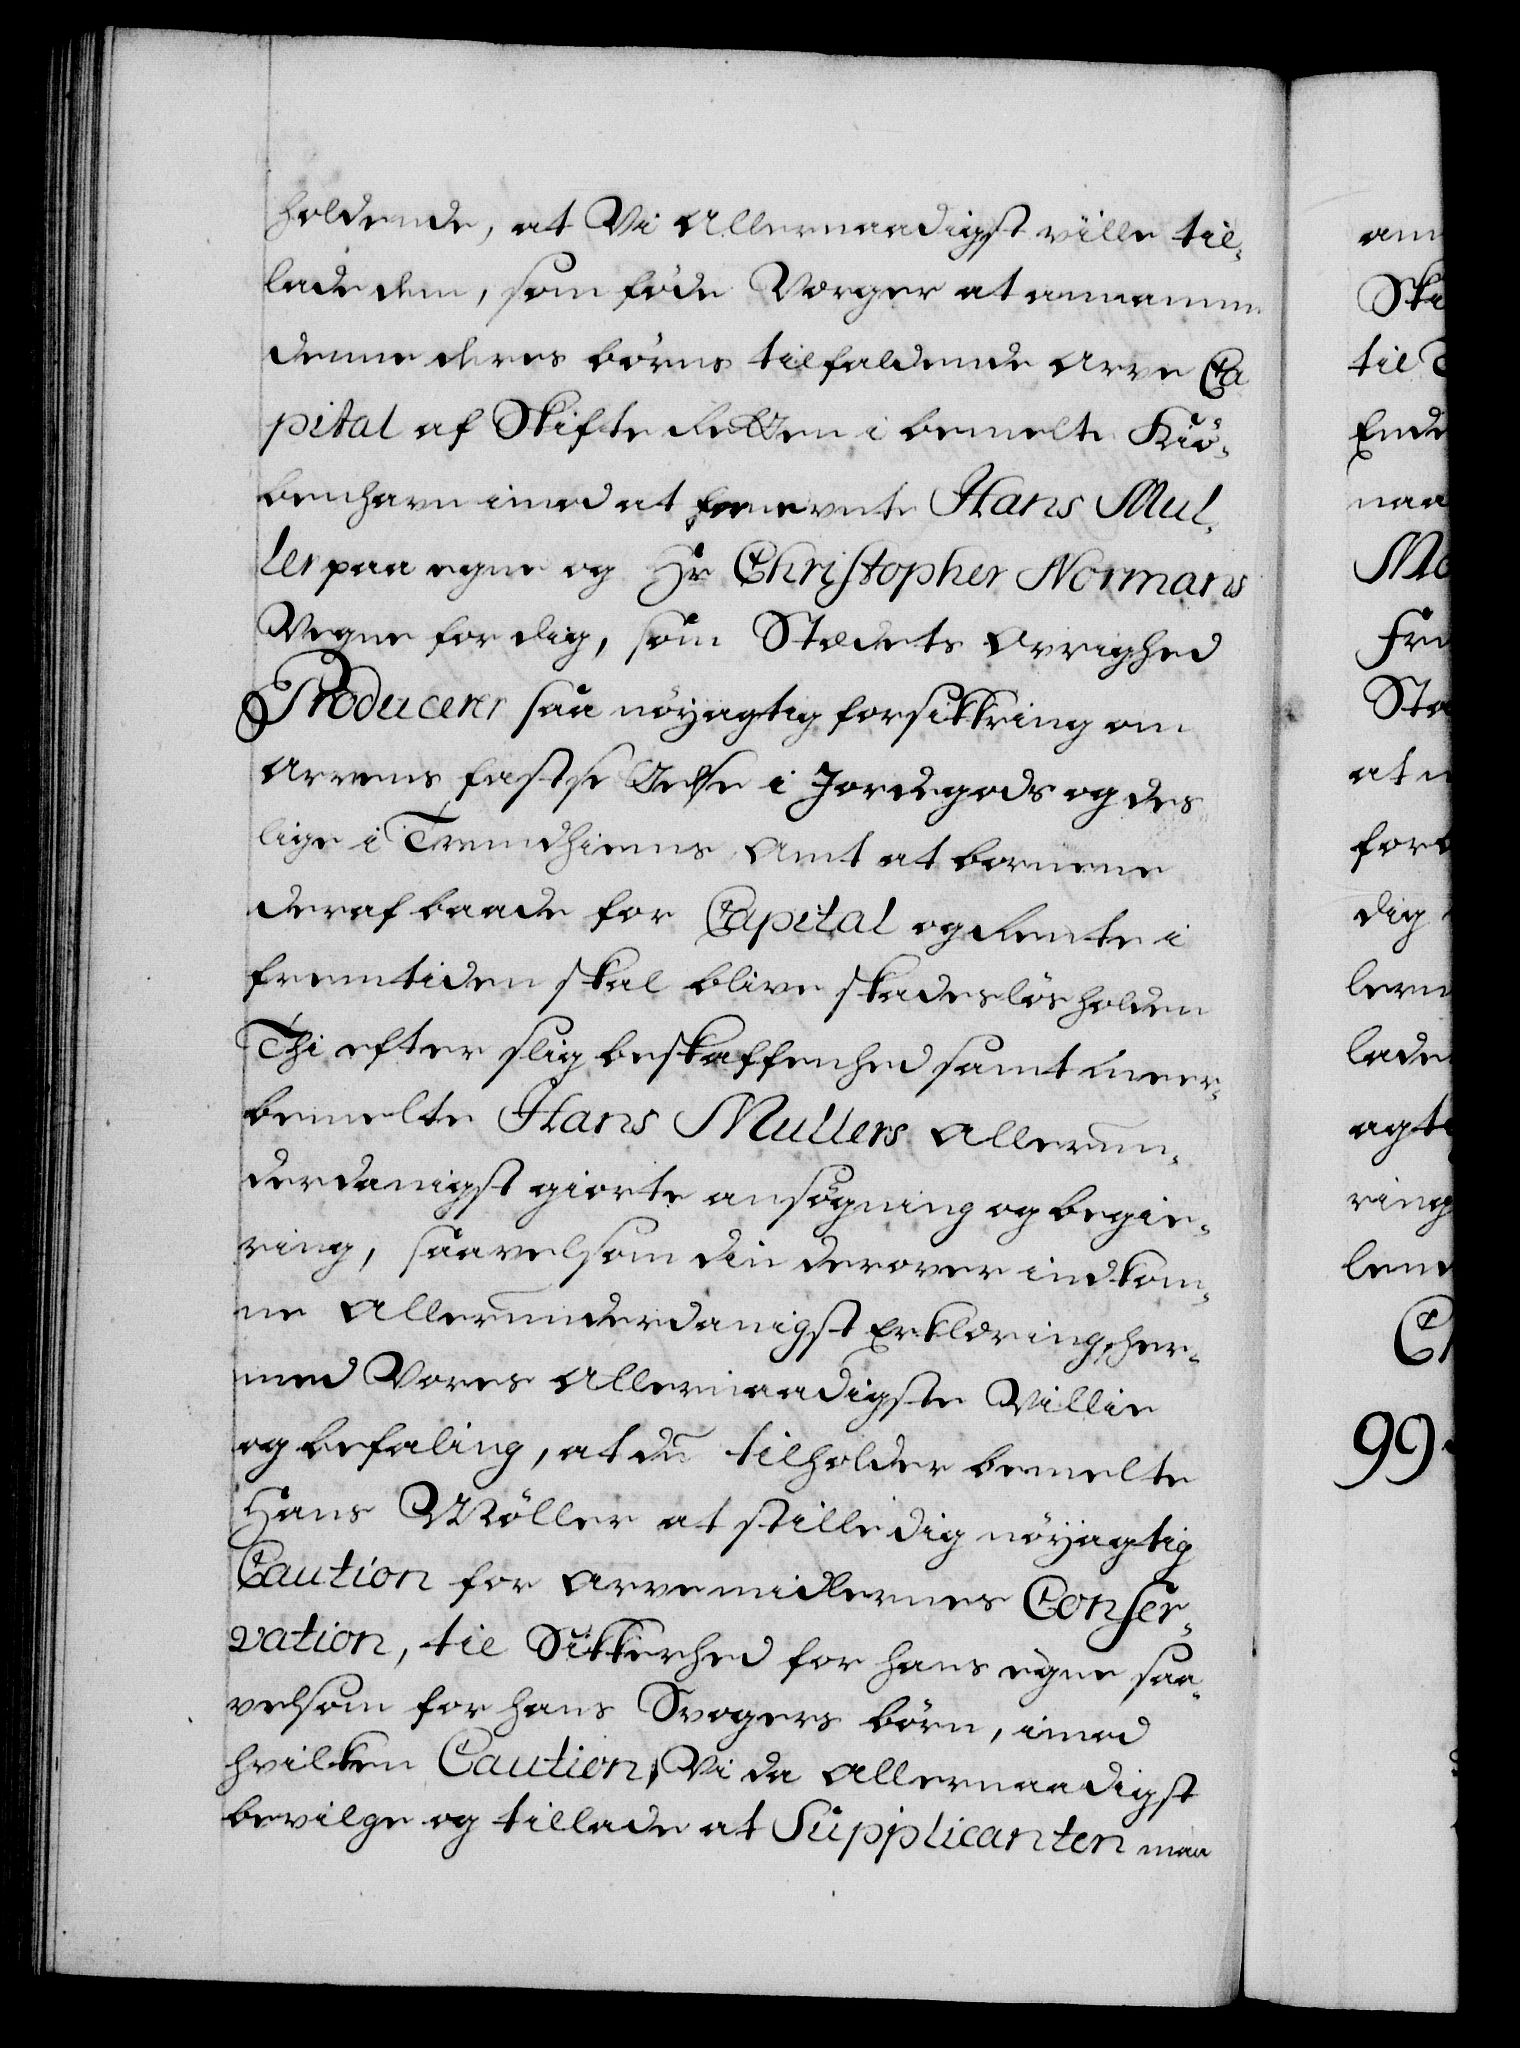 holdende, at Vi Allernaadigst ville til-
lade dem, som föde Værger at annamme
denne deres börns tilfaldende Arve Ca
pital af Skifte Retten i bemelte Kiö-
benhavn imod at Hans Mul-
ler paa egne og Hr Christopher Normans
Vegne for dig, som Stædets Øvrighed
Producerer saa nöyagtig forsikkring om
Arvens fastsettelse i Jordegods og des
lige i Trundhiems Amt at børnene
deraf baade for Capital og Rente i
fremtiden skal blive skadeslös holden
Thi efter slig beskaffenhed samt meer-
bemelte Hans Mullers Allerun-
derdanigst giorte ansögning og begie-
ring, saavelsom din derover indkom-
ne Allerunderdanigst Erklæring, her-
med Vores Allernaadigste Villie
og befaling, at du tilholder bemelte
Hans Möller at stille dig nöyagtig
Caution for Arvemidlernes Conser-
vation, til Sikkerhed for hans egne saa-
velsom for hans Svogers börn, imod
hvilken Caution, Vi da Allernaadigst
bevilge og tillade at Supplicanten maa
ann
Ska
til
Ende
naa
Mo
Fre
Sta
at
forb
dig
lern
lade
agt
ring
lem
Ch
99.